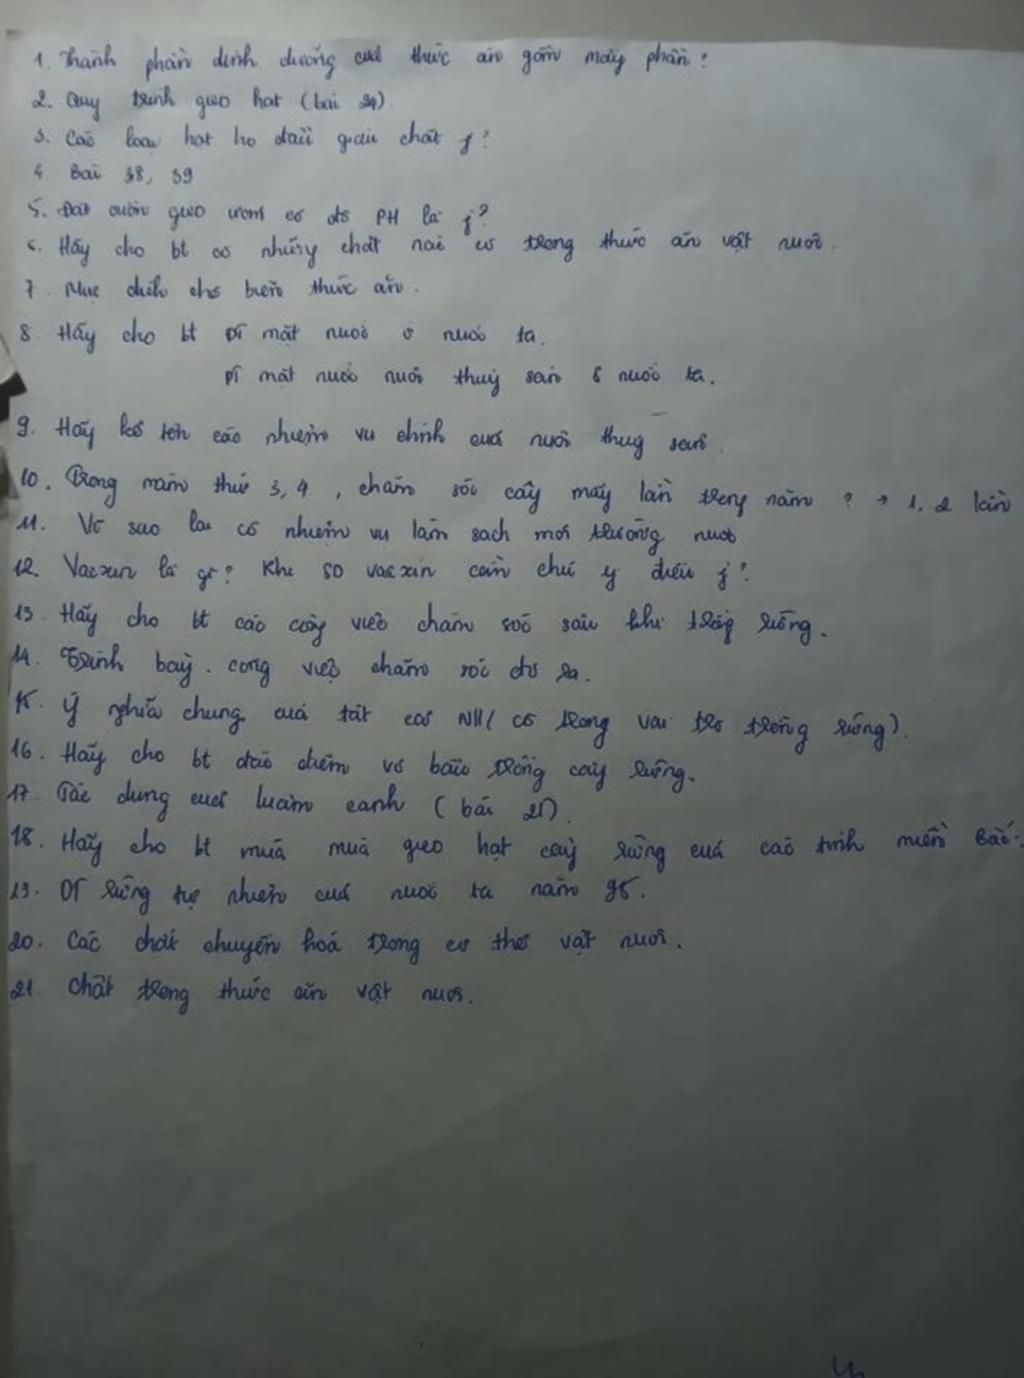 1. Thành phần dinh dưỡng của thức ăn gồm mấy phần?
2. Quy trình gieo hạt (bài 24)
3. Các loại hạt họ đậu giàu chất j?
4. Bài 38, 39
5. Đất vườn gieo ươm có độ PH là j?
6. Hãy cho bt có những chất nào có trong thức ăn vật nuôi.
7. Mục đích chế biến thức ăn.
8. Hãy cho bt DT mặt nước ở nước ta.
DT mặt nước nuôi thuỷ sản ở nước ta.
9. Hãy kể tên các nhiệm vụ chính của nuôi thuỷ sản.
10. Trong năm thứ 3, 4, chăm sóc cây mấy lần trong năm? → 1, 2 lần
11. Vì sao lại có nhiệm vụ làm sạch môi trường nước
12. Vacxin là gì? Khi sd vacxin cần chú ý điều j?
13. Hãy cho bt các công việc chăm sóc sau khi trồng rừng.
14. Trình bày công việc chăm sóc
15. Ý nghĩa chung của tất cả NV (có trong vai trò trồng rừng).
16. Hãy cho bt đặc điểm vỏ bầu trồng cây rừng.
17. Tác dụng của luân canh (bài 21).
18. Hãy cho bt mùa gieo hạt cây rừng của các tỉnh miền Bắc.
19. DT rừng tự nhiên của nước ta năm 95.
20. Các chất chuyển hoá trong cơ thể vật nuôi.
21. Chất trong thức ăn vật nuôi.